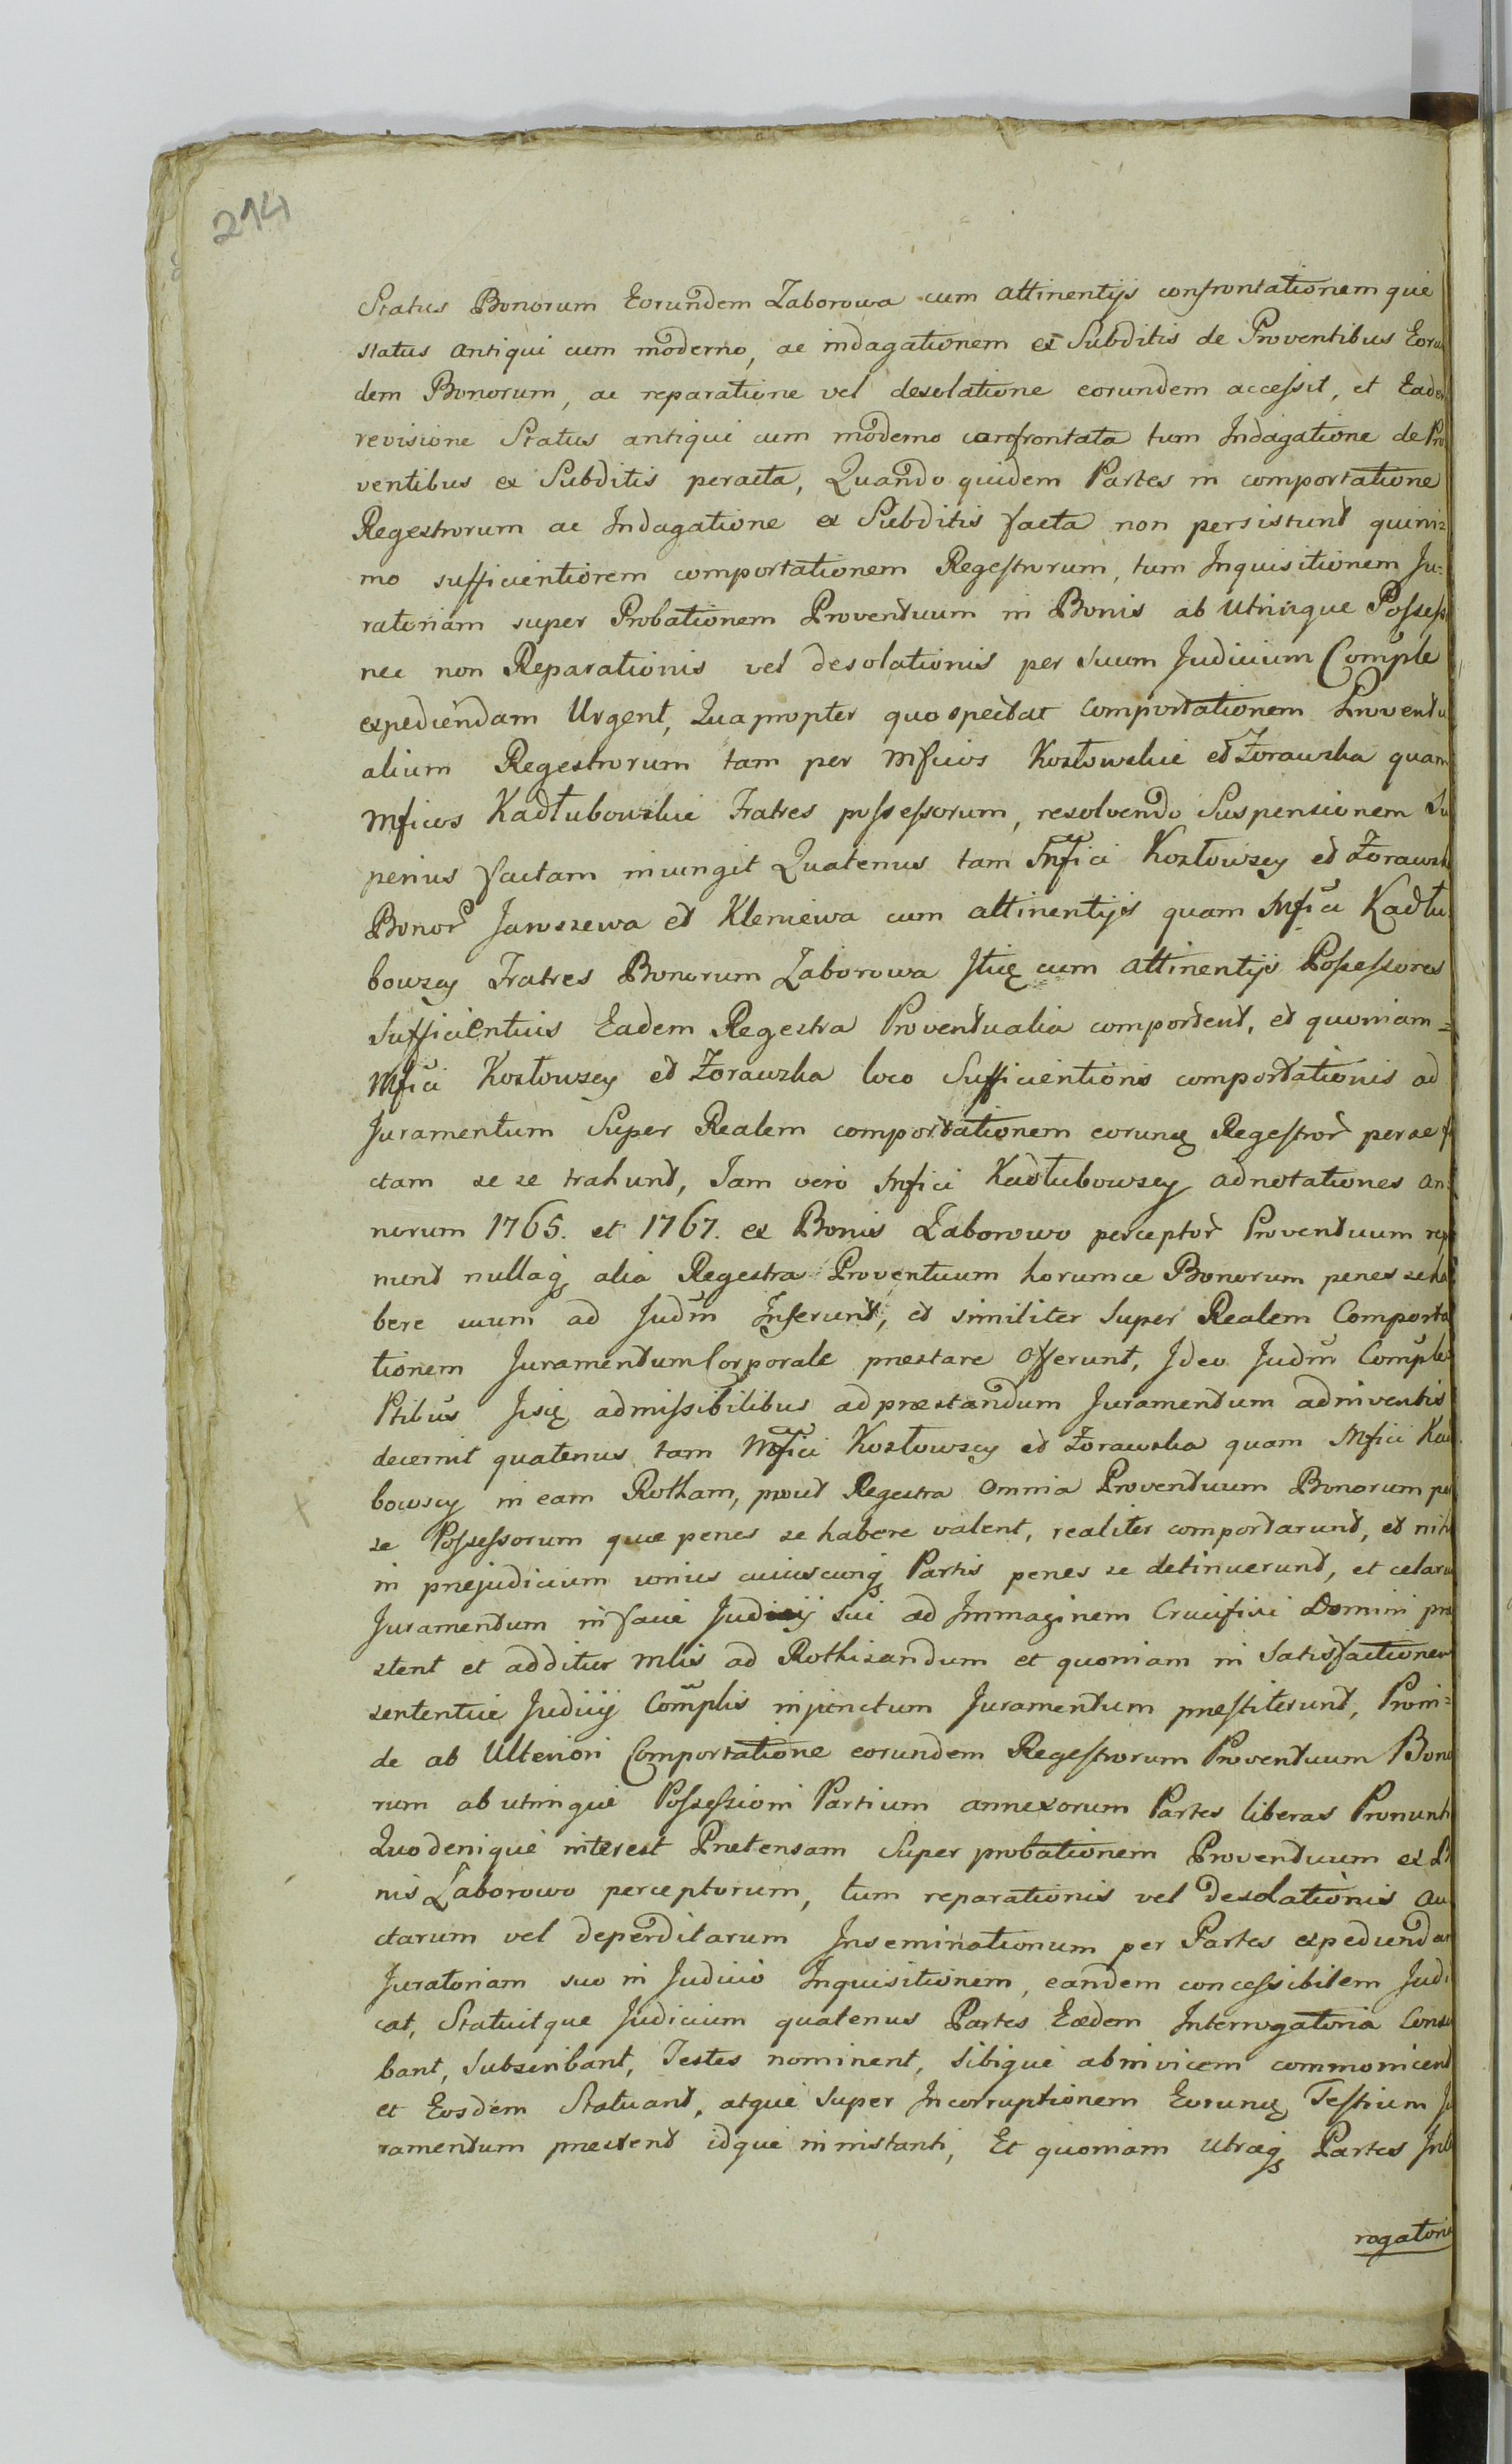 214
Status Bonorum Eorundem Zaborowa cum attinentijs confrontationem que
status antiqui cum moderno, ac indagationem ex Subditis de Proventibus Eorun
dem Bonorum, ac reparatione vel desolatione eorundem accessit, et Eadem
revisione Status antiqui cum moderno confrontata tum Indagatione de Pro
ventibus ex Subditis peracta, Quando quidem Partes in comportatione
Regestrorum ac Indagatione ex Subditis facta non persistunt quini=
mo sufficientiorem comportationem Regestrorum, tum Inquisitionem Ju=
ratoriam super Probationem Proventuum in Bonis ab Utrinque Possess
nec non Reparationis vel desolationis per suum Judicium Comple
expediendam Urgent, Quapropter quo spectat comportationem Proventu
alium Regestrorum tam per Mficos Kozłowskie et Zorawska quam
Mficos Kadłubowskie Fratres possessorum, resolvendo Suspensionem Su
perius factam iniungit Quatenus tam Mfici Kozłowscy et Zorawsk
Bonor Jaroszewa et Kleniewa cum attinentijs quam Mfici Kadłu
bowscy Fratres Bonorum Zaborowa cum attinentijs Possessores
Sufficientius Eadem Regestra Proventualia comportent, et quoniam=
Mfici Kozłowscy et Zorawska loco Sufficientioris comportationis ad
Juramentum Super Realem comportationem eorunq Regestror per se f
ctam se se trahunt, Jam vero Mfici Kadłubowscy adnotationes an=
norum 1765. et 1767. ex Bonis Zaborowo perceptor Proventuum rep
nunt nullaq alia Regestra Proventuum horumce Bonorum penes se ha
bere suum ad Judm Inferunt, et similiter Super Realem Comporta
tionem Juramentum Corporale prestare Offerunt, Ideo Judm Comple
Ptibus admissibilibus ad prestandum Juramentum adinventis
decernit quatenus tam Mfici Kozłowscy et Zorawska quam Mfici Kad
bowscy in eam Rotham, prout Regestra Omnia Proventuum Bonorum per
se Possessorum que penes se habere valent, realiter comportarunt, et nih
in prejudicium unius cuiuscunq Partis penes se detinuerunt, et celarun
Juramentum in facie Judicij sui ad Immaginem Crucifixi Domini pre
stent et additur Mlis ad Rothisandum et quoniam in Satisfactionem
sententie Judicij Complis injunctum Juramentum prestiterunt, Proin=
de ab Ulteriori Comportatione eorundem Regestrorum Proventuum Bono
rum ab utrinque Possessioni Partium annexorum Partes liberas Pronunti
Quo denique interest Pretensam Super probationem Proventuum ex B
nis Zaborowo perceptorum, tum reparationis vel desolationis au
ctarum vel deperditarum Inseminationum per Partes expediendam
Juratoriam suo in Judicio Inquisitionem, eandem concessibilem Judi
cat, Statuitque Judicium quatenus Partes Eædem Interrogatoria Conscri
bant, Subscribant, Testes nominent, Sibique abinvicem commonicent
et Eosdem Statuant, atque Super Incorruptionem Eorunq Testium Ju
ramentum prestent idque in instanti, Et quoniam Utræq Partes Inte
rogatoria